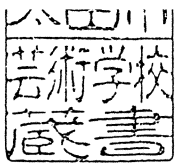 芸術学校
蔵書